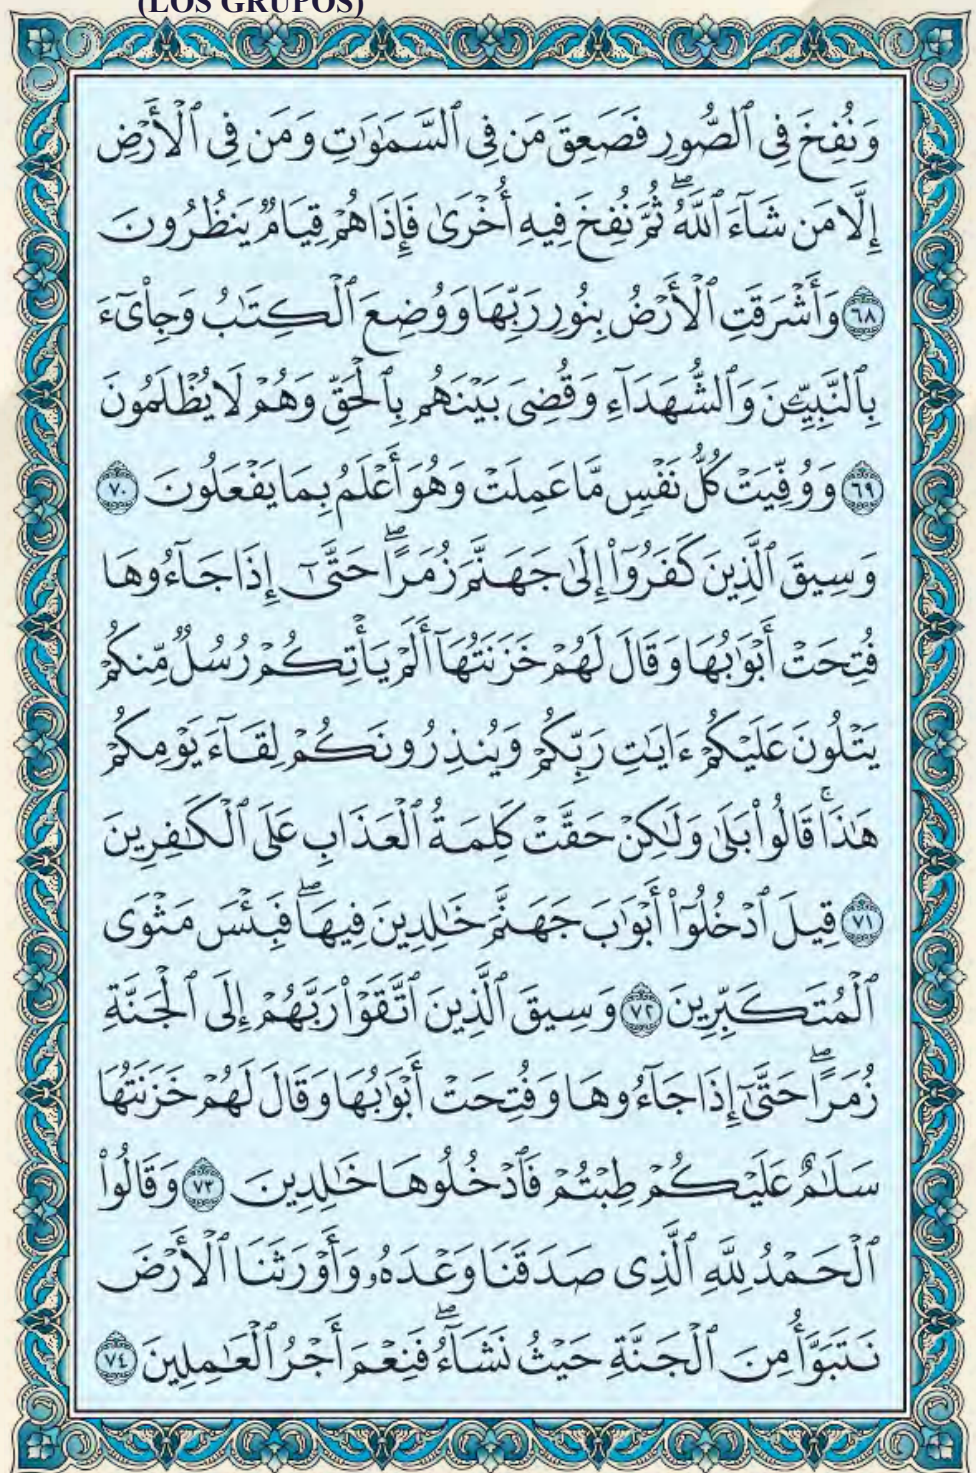 (LOS GRUPOS)
وَنُفِخَ فِى ٱلصُّورِ فَصَعِقَ مَن فِى ٱلسَّمَـٰوَٰتِ وَمَن فِى ٱلْأَرْضِ
إِلَّا مَن شَآءَ ٱللَّهُ ۖ ثُمَّ نُفِخَ فِيهِ أُخْرَىٰ فَإِذَا هُمْ قِيَامٌ يَنظُرُونَ
٦٨ وَأَشْرَقَتِ ٱلْأَرْضُ بِنُورِ رَبِّهَا وَوُضِعَ ٱلْكِتَـٰبُ وَجِا۟ىٓءَ
بِٱلنَّبِيِّـۧنَ وَٱلشُّهَدَآءِ وَقُضِىَ بَيْنَهُم بِٱلْحَقِّ وَهُمْ لَا يُظْلَمُونَ
٦٩ وَوُفِّيَتْ كُلُّ نَفْسٍ مَّا عَمِلَتْ وَهُوَ أَعْلَمُ بِمَا يَفْعَلُونَ ٧٠
وَسِيقَ ٱلَّذِينَ كَفَرُوٓا۟ إِلَىٰ جَهَنَّمَ زُمَرًا ۖ حَتَّىٰٓ إِذَا جَآءُوهَا
فُتِحَتْ أَبْوَٰبُهَا وَقَالَ لَهُمْ خَزَنَتُهَآ أَلَمْ يَأْتِكُمْ رُسُلٌ مِّنكُمْ
يَتْلُونَ عَلَيْكُمْ ءَايَـٰتِ رَبِّكُمْ وَيُنذِرُونَكُمْ لِقَآءَ يَوْمِكُمْ
هَـٰذَا ۚ قَالُوا۟ بَلَىٰ وَلَـٰكِنْ حَقَّتْ كَلِمَةُ ٱلْعَذَابِ عَلَى ٱلْكَـٰفِرِينَ
٧١ قِيلَ ٱدْخُلُوٓا۟ أَبْوَٰبَ جَهَنَّمَ خَـٰلِدِينَ فِيهَا ۖ فَبِئْسَ مَثْوَى
ٱلْمُتَكَبِّرِينَ ٧٢ وَسِيقَ ٱلَّذِينَ ٱتَّقَوْا۟ رَبَّهُمْ إِلَى ٱلْجَنَّةِ
زُمَرًا ۖ حَتَّىٰٓ إِذَا جَآءُوهَا وَفُتِحَتْ أَبْوَٰبُهَا وَقَالَ لَهُمْ خَزَنَتُهَا
سَلَـٰمٌ عَلَيْكُمْ طِبْتُمْ فَٱدْخُلُوهَا خَـٰلِدِينَ ٧٣ وَقَالُوا۟
ٱلْحَمْدُ لِلَّهِ ٱلَّذِى صَدَقَنَا وَعْدَهُۥ وَأَوْرَثَنَا ٱلْأَرْضَ
نَتَبَوَّأُ مِنَ ٱلْجَنَّةِ حَيْثُ نَشَآءُ ۖ فَنِعْمَ أَجْرُ ٱلْعَـٰمِلِينَ ٧٤